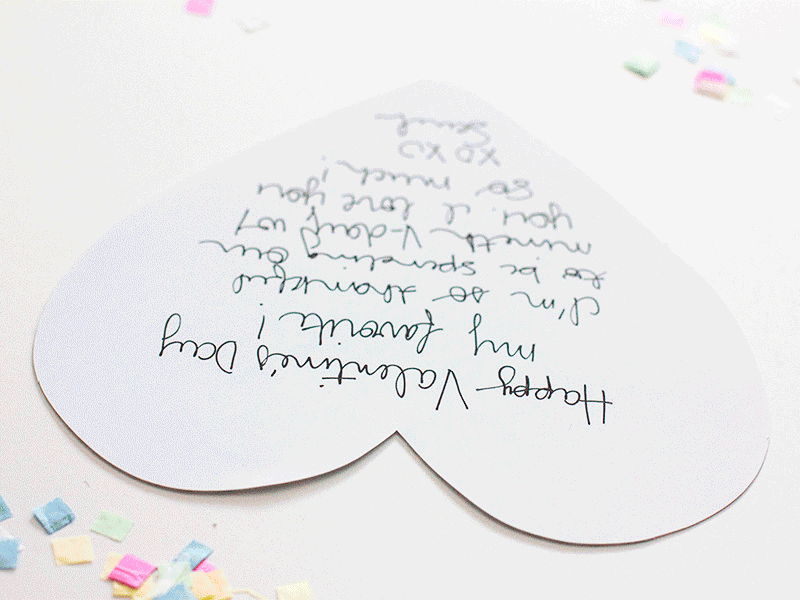 Happy Valentine's Day
my favorite!
I'm so thankful
to be spending our
nineth V-day w/
you. I love you
so much!
XO XO
Sarah